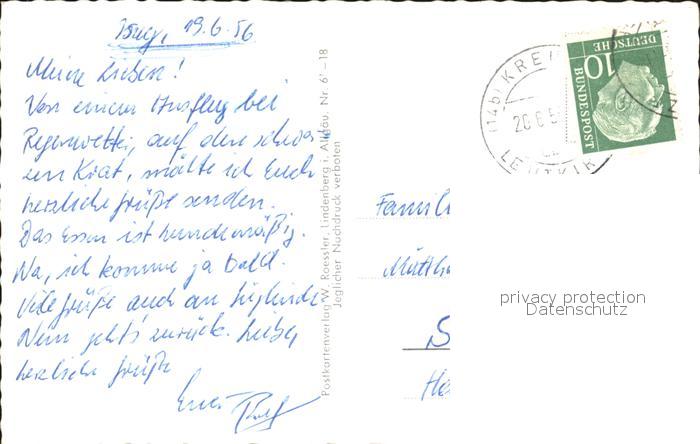 Isny, 19.6.56
Meine Lieben!
Von einem Ausflug bei
Regenwetter, auf den schwar
zen Grat, möchte ich Euch
herzliche Grüße senden.
Das Essen ist hundemäßig.
Na, ich komme ja bald.
Viele Grüße auch an Siglinde
Nun geht's zurück.
herzliche Grüße
Euer
Postkartenverlag W. Roessler, Lindenberg i. Allgäu. Nr. 6 -18
Jeglicher Nachdruck verboten
(14b) KRE
20.6.5
LEUTKIR
10
DEUTSCHE
BUNDESPOST
Famil
privacy protection
Datenschutz